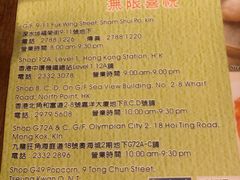 無限喜悅
G/F, 9-11 Fuk Wing Street, Sham Shui Po, kln.
深水埗福榮街9-11號地下
電話 2788 1226 傳真 2788 1220
營業時間 8:00 am-9:30 pm
Shop 12A, Level 1, Hong Kong Station, H.K.
香港中環機鐵總站Level 1 12A舖
電話: 2332 3078 營業時間: 9:00 am-9:30 pm
Shop B, C, D, On G/F Sea View Building, No. 2-8
Road, North Point, HK
香港北角和富道2-8號富洋大廈地下B,C,D號舖
電話: 2979 5608 營業時間: 9:00 am-10:00 pm
Shop G72A & C, G/F, Olympian City 2, 18 Hoi Ting Road,
Mong Kok, Kln.
九龍旺角海庭道18號奧海城2期地下G72A-C舖
電話: 2332 2896 營業時間: 10:00
Popcorn, 9 Tong Chun Street,